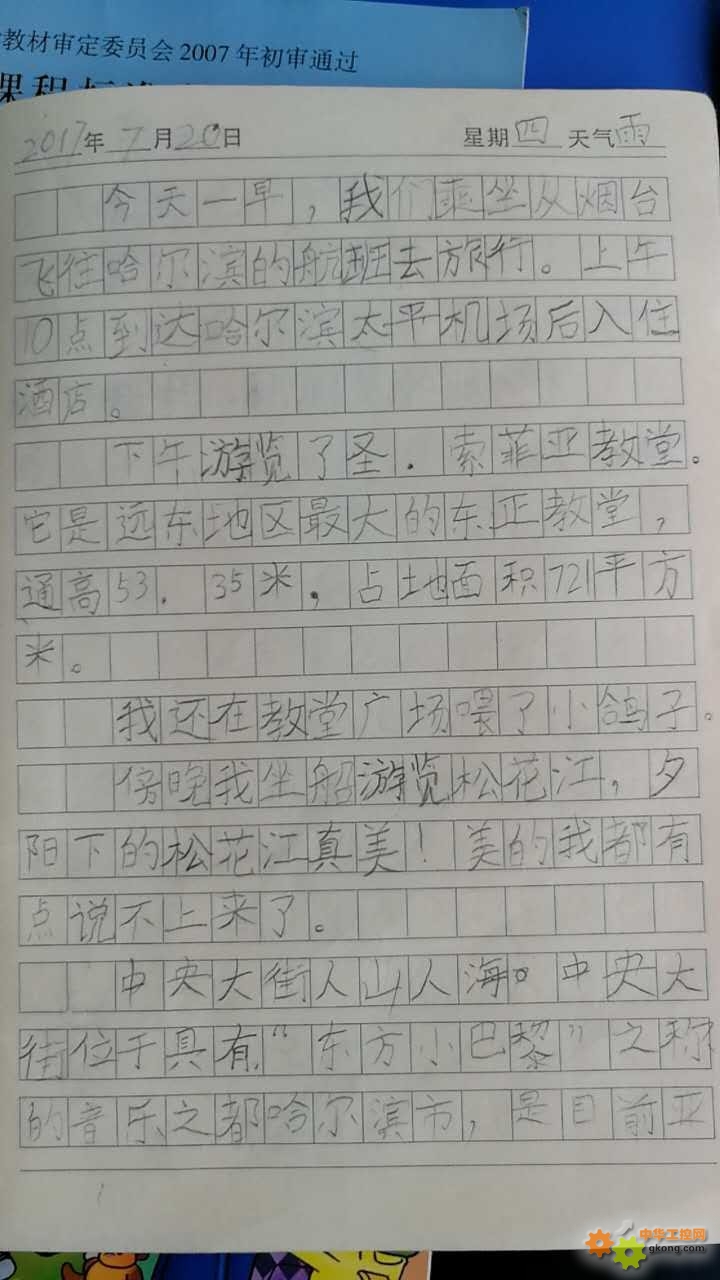 教材审定委员会2007年初审通过
课程标准
2017年7月20日 星期四 天气雨
今天一早，我们乘坐从烟台
飞往哈尔滨的航班去旅行。上午
10点到达哈尔滨太平机场后入住
酒店。
下午游览了圣．索菲亚教堂。
它是远东地区最大的东正教堂，
通高53．35米，占地面积721平方
米。
我还在教堂广场喂了小鸽子。
傍晚我坐船游览松花江，夕
阳下的松花江真美！美的我都有
点说不上来了。
中央大街人山人海。中央大
街位于具有“东方小巴黎”之称
的音乐之都哈尔滨市，是目前亚
中华工控网
gkong.com